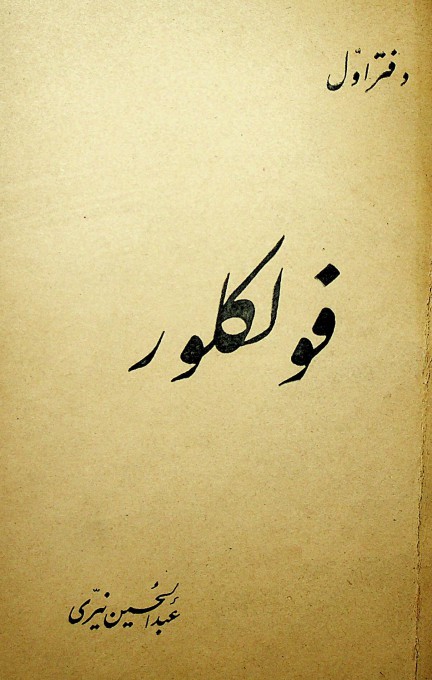 دفتر اوّل
فولکلور
عبدالحسین نیّری